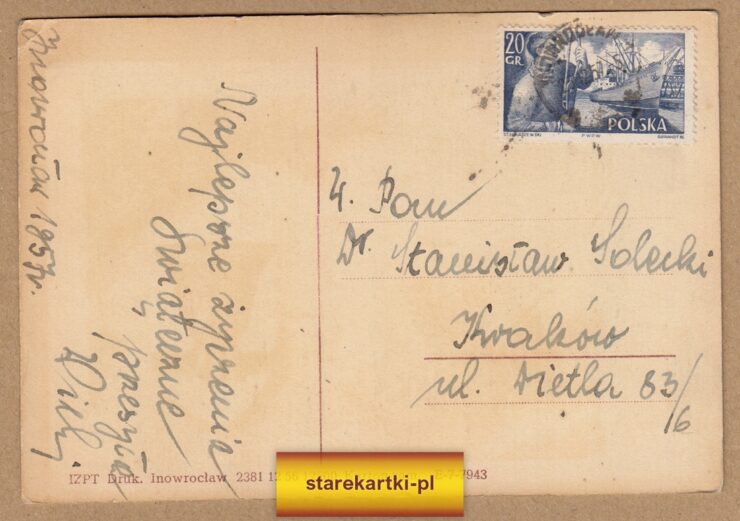 Inowrocław 1957r.
Najlepsze życzenia
Świąteczne
przesyła
20
GR
POLSKA
P.W.P.W.
W. Pan
Dr. Stanisław Solecki
Kraków
ul. Dietla 83/6
IZPT Druk. Inowrocław 2381 12 56
E-7-7943
starekartki-pl